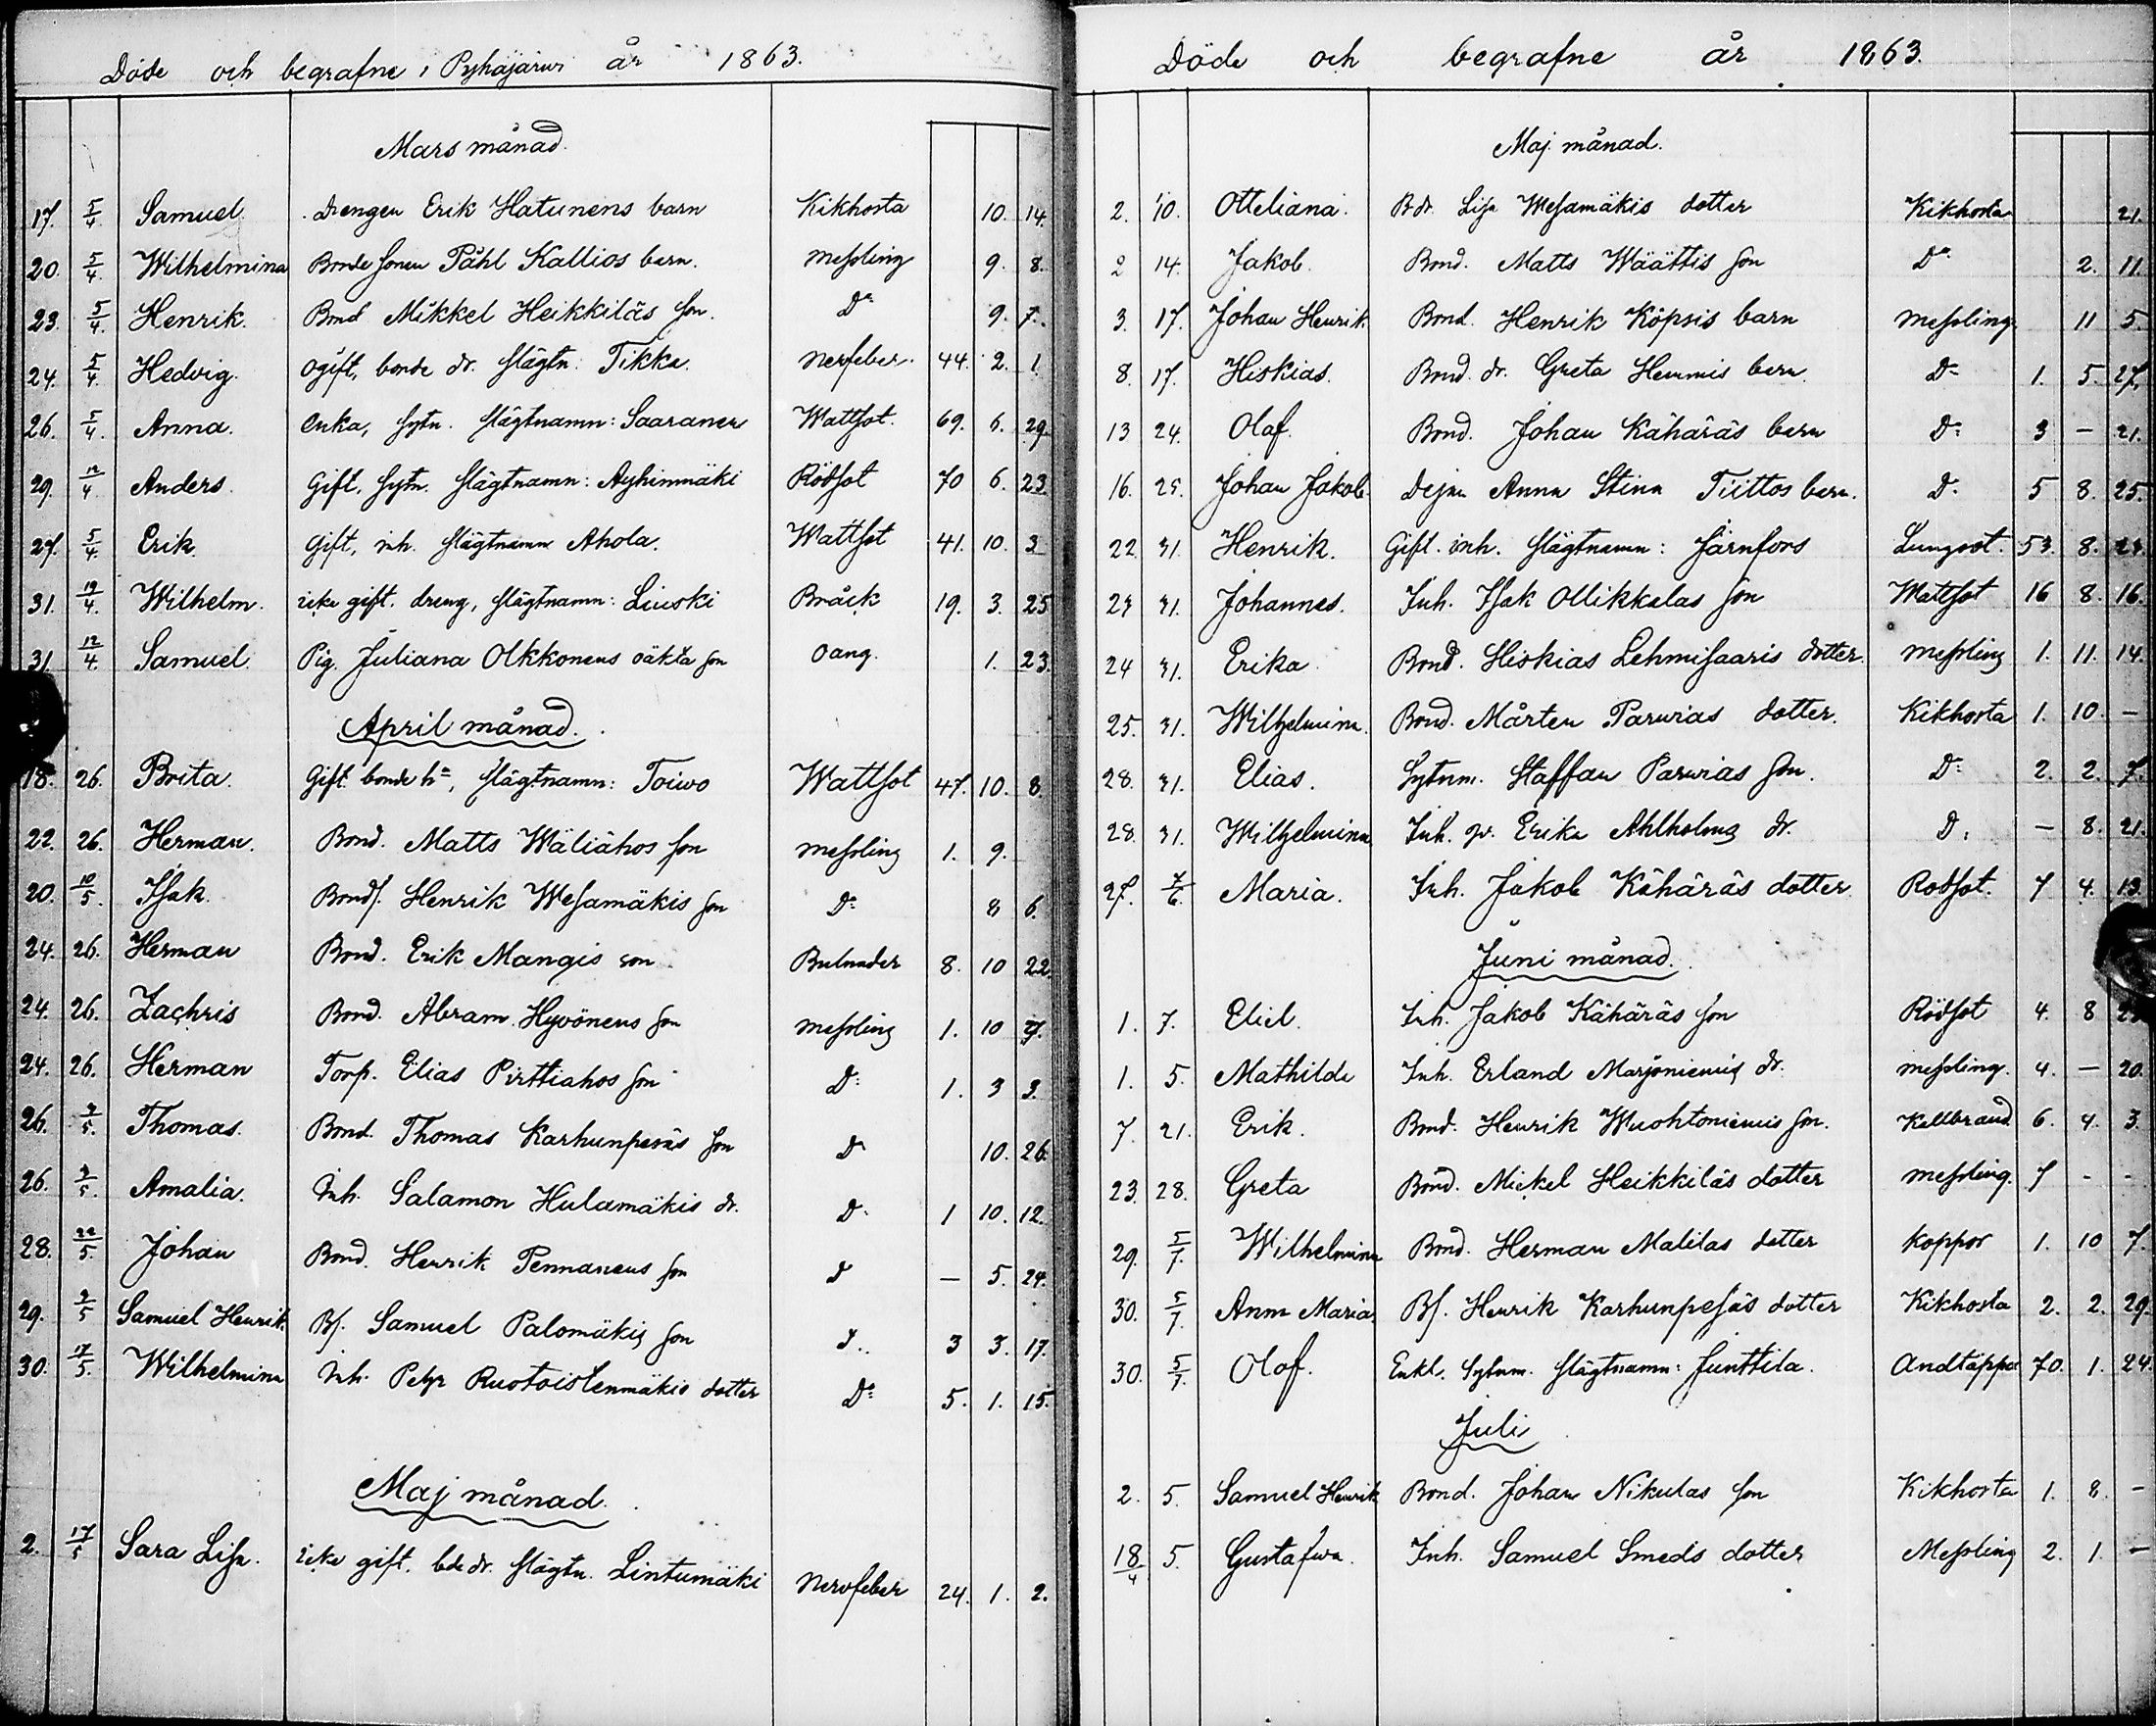 Döde och begrafne i Pyhäjärwi år 1863.
Mars månad.
17. 5/4. Samuel. Drengen Erik Hatunens barn Kikhosta 10. 14.
20. 5/4. Wilhelmina Bonde sonen Påhl Kallios barn. messling 9. 8.
23. 5/4. Henrik. Bond Mikkel Heikkiläs son. Do 9. 7.
24. 5/4. Hedvig. ogift, bonde dr. slägtn: Tikka. nerfeber. 44. 2. 1.
26. 5/4. Anna. enka, sytn. slägtnamn: Saaranen Wattsot. 69. 6. 29.
29. 12/4. Anders. Gift, sytn. slägtnamn: Ayhinmäki Rödsot 70 6. 23.
27. 5/4. Erik. Gift, inh. slägtnamn Ahola. Wattsot 41. 10. 3
31. 19/4. Wilhelm. icke gift. dreng, slägtnamn: Liuski Bråck 19. 3. 25
31 12/4. Samuel. Pig. Juliana Olkkonens oäkta son oang. 1. 23.
April månad.
18. 26. Brita. Gift bonde h=, slägtnamn: Toiwo Wattsot 47. 10. 8.
22. 26. Herman. Bond. Matts Wäliähos son messling 1. 9.
20. 10/5. Isak. Bonds. Henrik Wesamäkis son Do 8 6.
24. 26. Herman Bond. Erik Mangis son Bulnader 8. 10 22.
24. 26. Zachris Bond. Abram Hyvönens son messling 1. 10 27.
24. 26. Herman Torp. Elias Pirttiahos son D: 1. 3 3.
26. 3/5. Thomas. Bond. Thomas Karhunpesäs son D 10. 26.
26. 3/5. Amalia. Inh. Salamon Hulamäkis dr. D. 1 10. 12.
28. 22/5. Johan Bond. Henrik Pennanens son D — 5. 24.
29. 3/5 Samuel Henrik. Bs. Samuel Palomäkis son D.. 3 3. 17.
30. 17/5. Wilhelmina Inh. Petr Ruotoistenmäkis dotter Do 5. 1. 15.
Maj månad.
2. 17/5 Sara Lisa. icke gift. bde dr. slägtn. Lintumäki nervfeber 24. 1. 2.
Döde och begrafne år 1863.
Maj månad.
2. 10. Otteliana. B dr. Lisa Wesamäkis dotter Kikhosta 21.
2 14. Jakob. Bond. Matts Wäättis son Do 2. 11.
3. 17. Johan Henrik. Bond. Henrik Köpsis barn messling. 11 5.
8. 17. Hiskias. Bond. dr. Greta Hemmis barn. D= 1. 5. 27.
13 24. Olaf. Bond. Johan Kähäräs barn D: 3 — 21.
16. 25. Johan Jakob. Dejan Anna Stina Tiittos barn. D. 5 8. 25.
22 31. Henrik. Gift. inh. slägtnamn: Järnfors Lungsot. 53. 8. 23.
23 31. Johannes. Inh. Isak Ollikkalas son Wattsot 16 8. 16.
24 31. Erika. Bond. Hiskias Lehmisaaris dotter. messling 1. 11. 14.
25. 31. Wilhelmina. Bond. Mårten Parwias dotter. Kikhosta 1. 10. —
28. 31. Elias. Sytnm. Staffan Parwias son. D: 2. 2. 7.
28. 31. Wilhelmina Inh. qv. Erika Ahlholms dr. D: — 8. 21.
27. 7/6. Maria. Inh. Jakob Kähäräs dotter. Rodsot. 7 4. 13.
Juni månad.
1. 7. Eliel. Inh. Jakob Kähäräs son Rödsot 4. 8
1. 5. Mathilda Inh. Erland Marjoniemis dr. messling. 4. — 20.
7. 21. Erik. Bond. Henrik Wuohtoniemis son. Kallbrand 6. 4. 3.
23. 28. Greta Bond. Mickel Heikkiläs dotter messling. 7 - -
29. 5/7. Wilhelmina Bond. Herman Malilas dotter koppor 1. 10 7.
30. 5/7. Anna Maria. Bs. Henrik Karhunpesäs dotter Kikhosta 2. 2. 29.
30. 5/7. Olof. Enkl. Sytnm. slägtnamn: Junttila. Andtäppa 70. 1. 24.
Juli
2. 5. Samuel Henrik Bond. Johan Nikulas son Kikhosta 1. 8. —
18/4. 5. Gustafwa. Inh. Samuel Smeds dotter Messling 2. 1. —